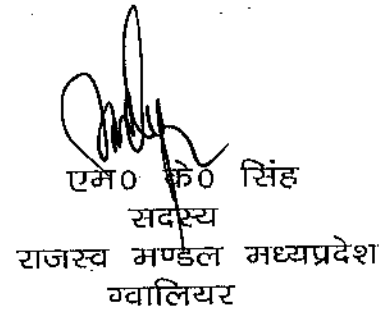 एम0 के0 सिंह
सदस्य
राजस्व मण्डल मध्यप्रदेश
ग्वालियर